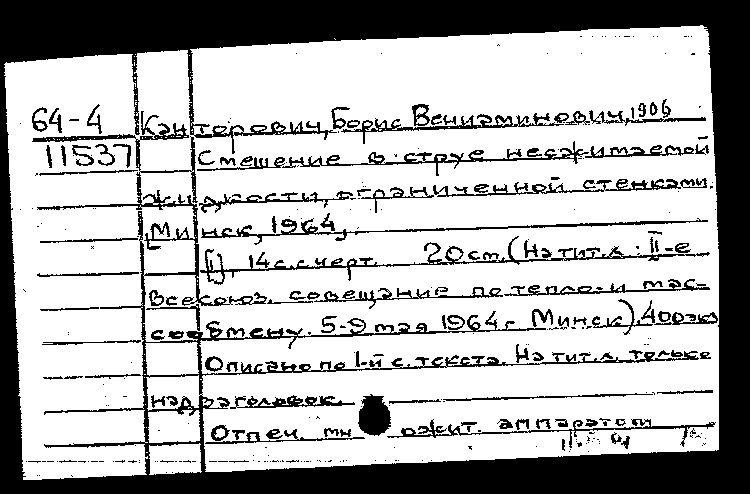 64-4 Канторович, Борис Вениаминович, 1906
11537 Смешение в струе несжимаемой
жидкости, ограниченной стенками.
Минск, 1964,
[1], 14 с. с черт. 20 см. (На тит. л.: II-е
Всесоюз. совещание по тепло- и мас-
сообмену. 5-9 мая 1964 г. Минск). 400 экз
Описано по 1-й с. текста. На тит. л. только
надзаголовок.
Отпеч. мн ожит. аппаратом